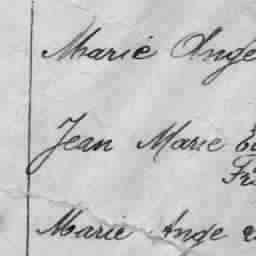 Marie Ange
Jean Marie
Marie Ange